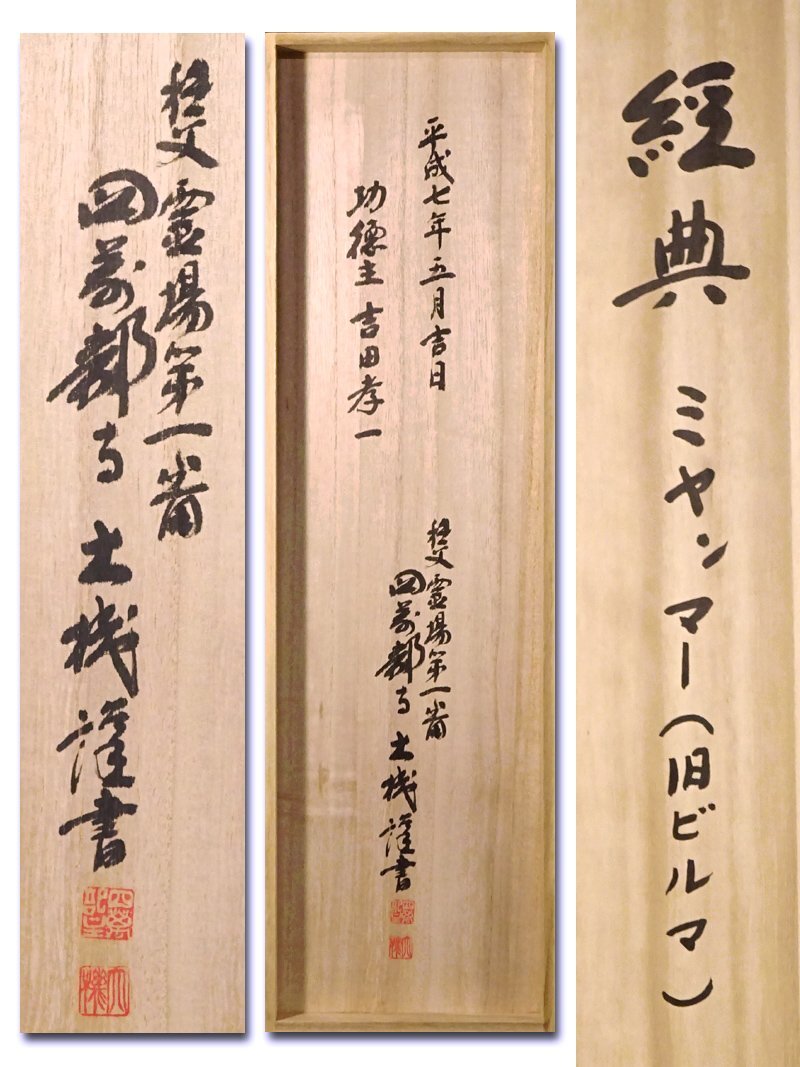 秩父霊場第一番
四萬部寺 大機謹書
大機
平成七年五月吉日
功徳主 吉田孝一
秩父霊場第一番
四萬部寺 大機謹書
大機
經典 ミヤンマー(旧ビルマ)